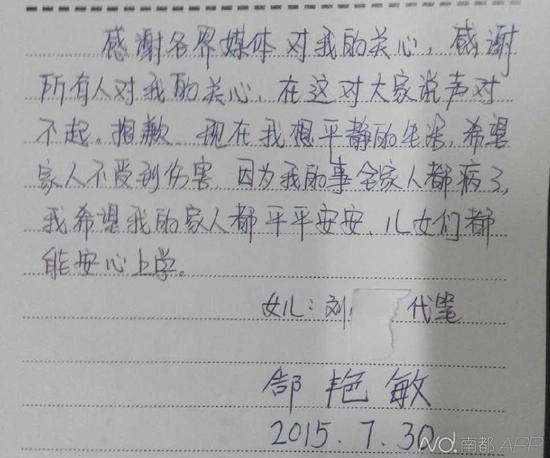 感谢各界媒体对我的关心，感谢
所有人对我的关心，在这对大家说声对
不起。抱歉 现在我想平静的生活，希望
家人不受到伤害，因为我的事全家人都病了，
我希望我的家人都平平安安，儿女们都
能安心上学。
女儿：刘 代笔
郜艳敏
2015.7.30
南都APP